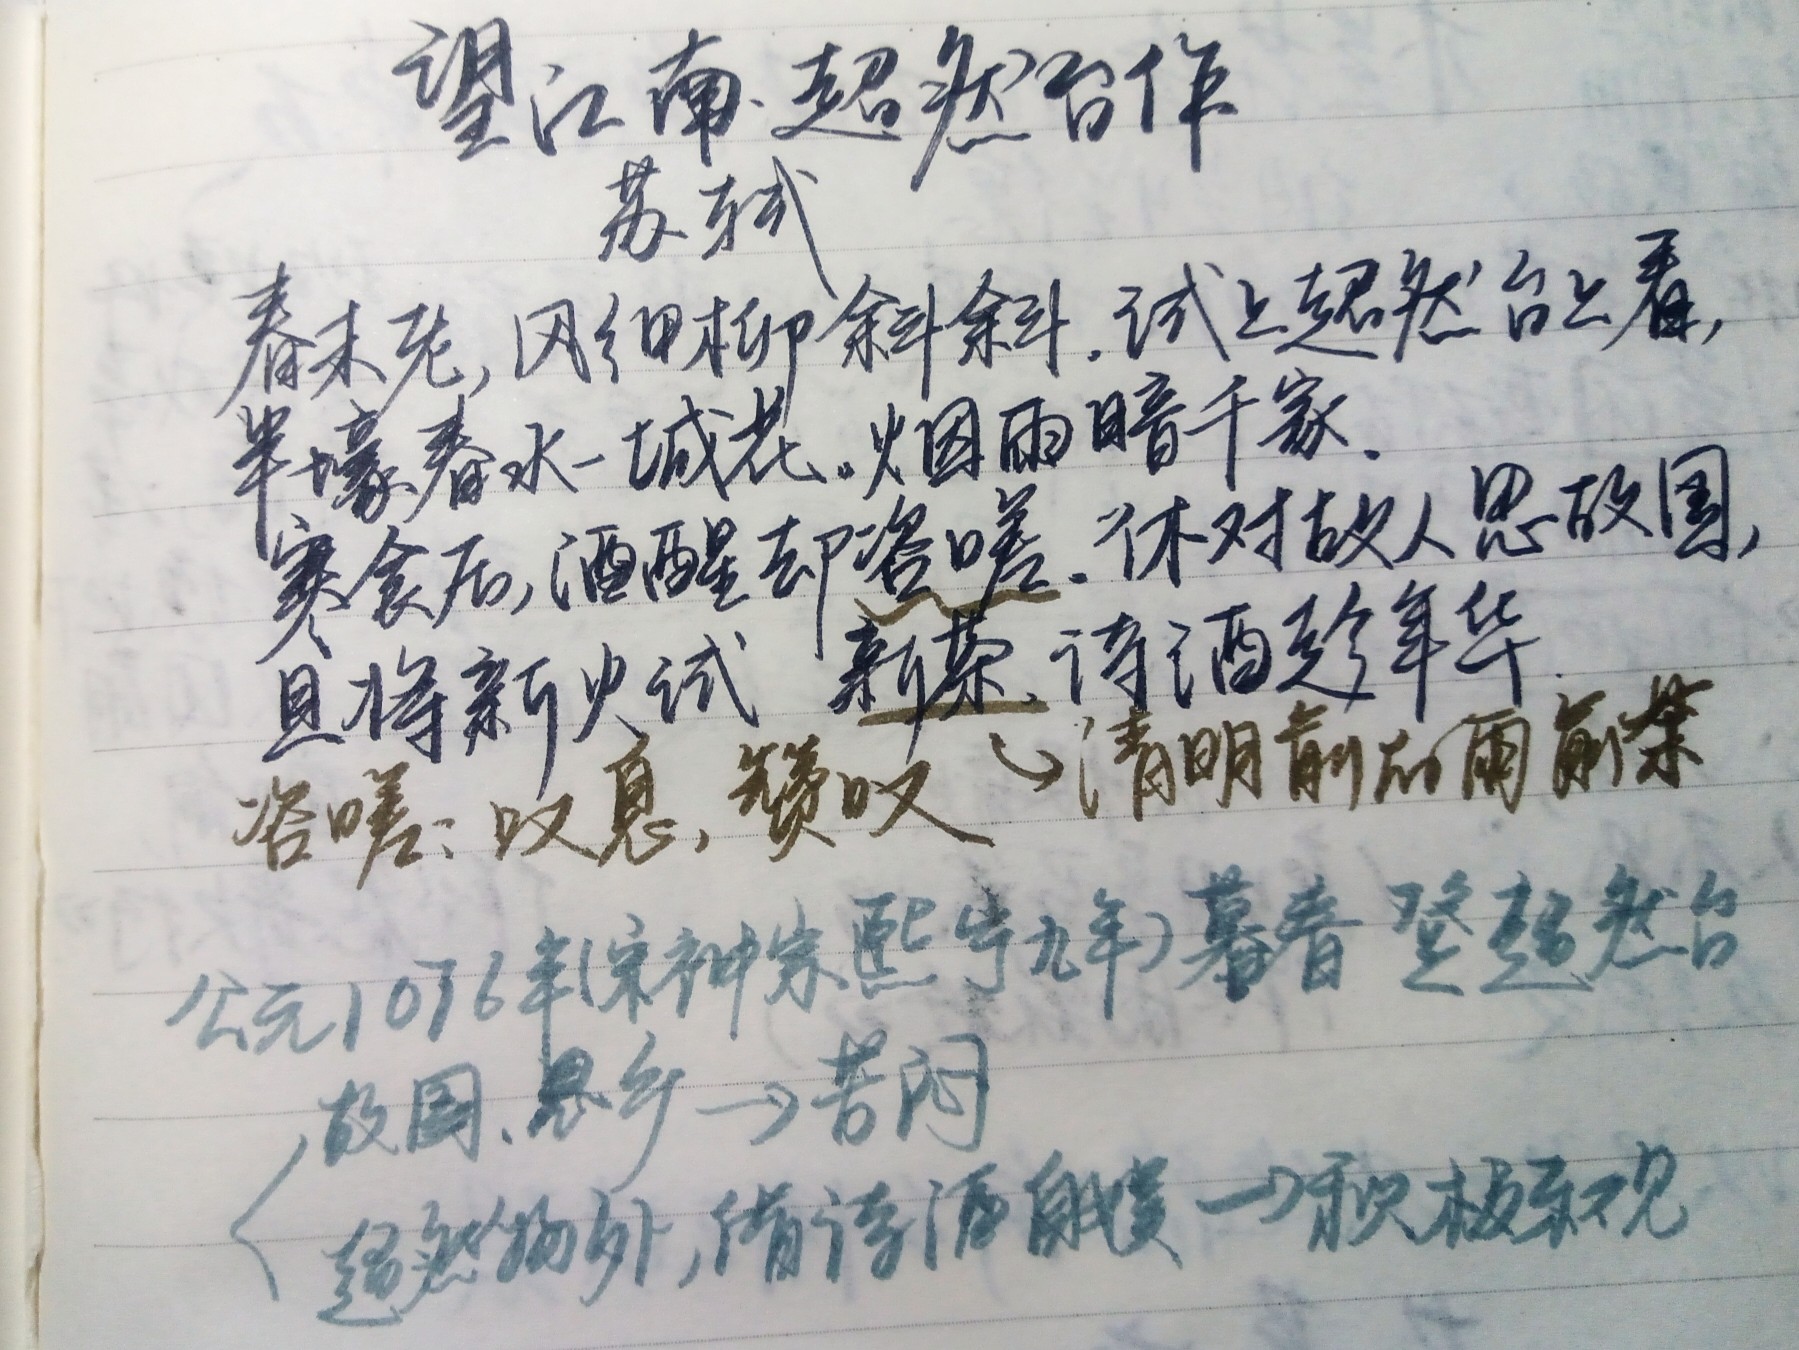 望江南·超然台作
苏轼
春未老，风细柳斜斜。试上超然台上看，
半壕春水一城花。烟雨暗千家。
寒食后，酒醒却咨嗟。休对故人思故国，
且将新火试 新茶。诗酒趁年华。
咨嗟：叹息，赞叹 → 清明前的雨前茶
公元1076年(宋神宗熙宁九年)暮春 登超然台
故国、思乡 → 苦闷
超然物外，借诗酒自娱 → 积极乐观